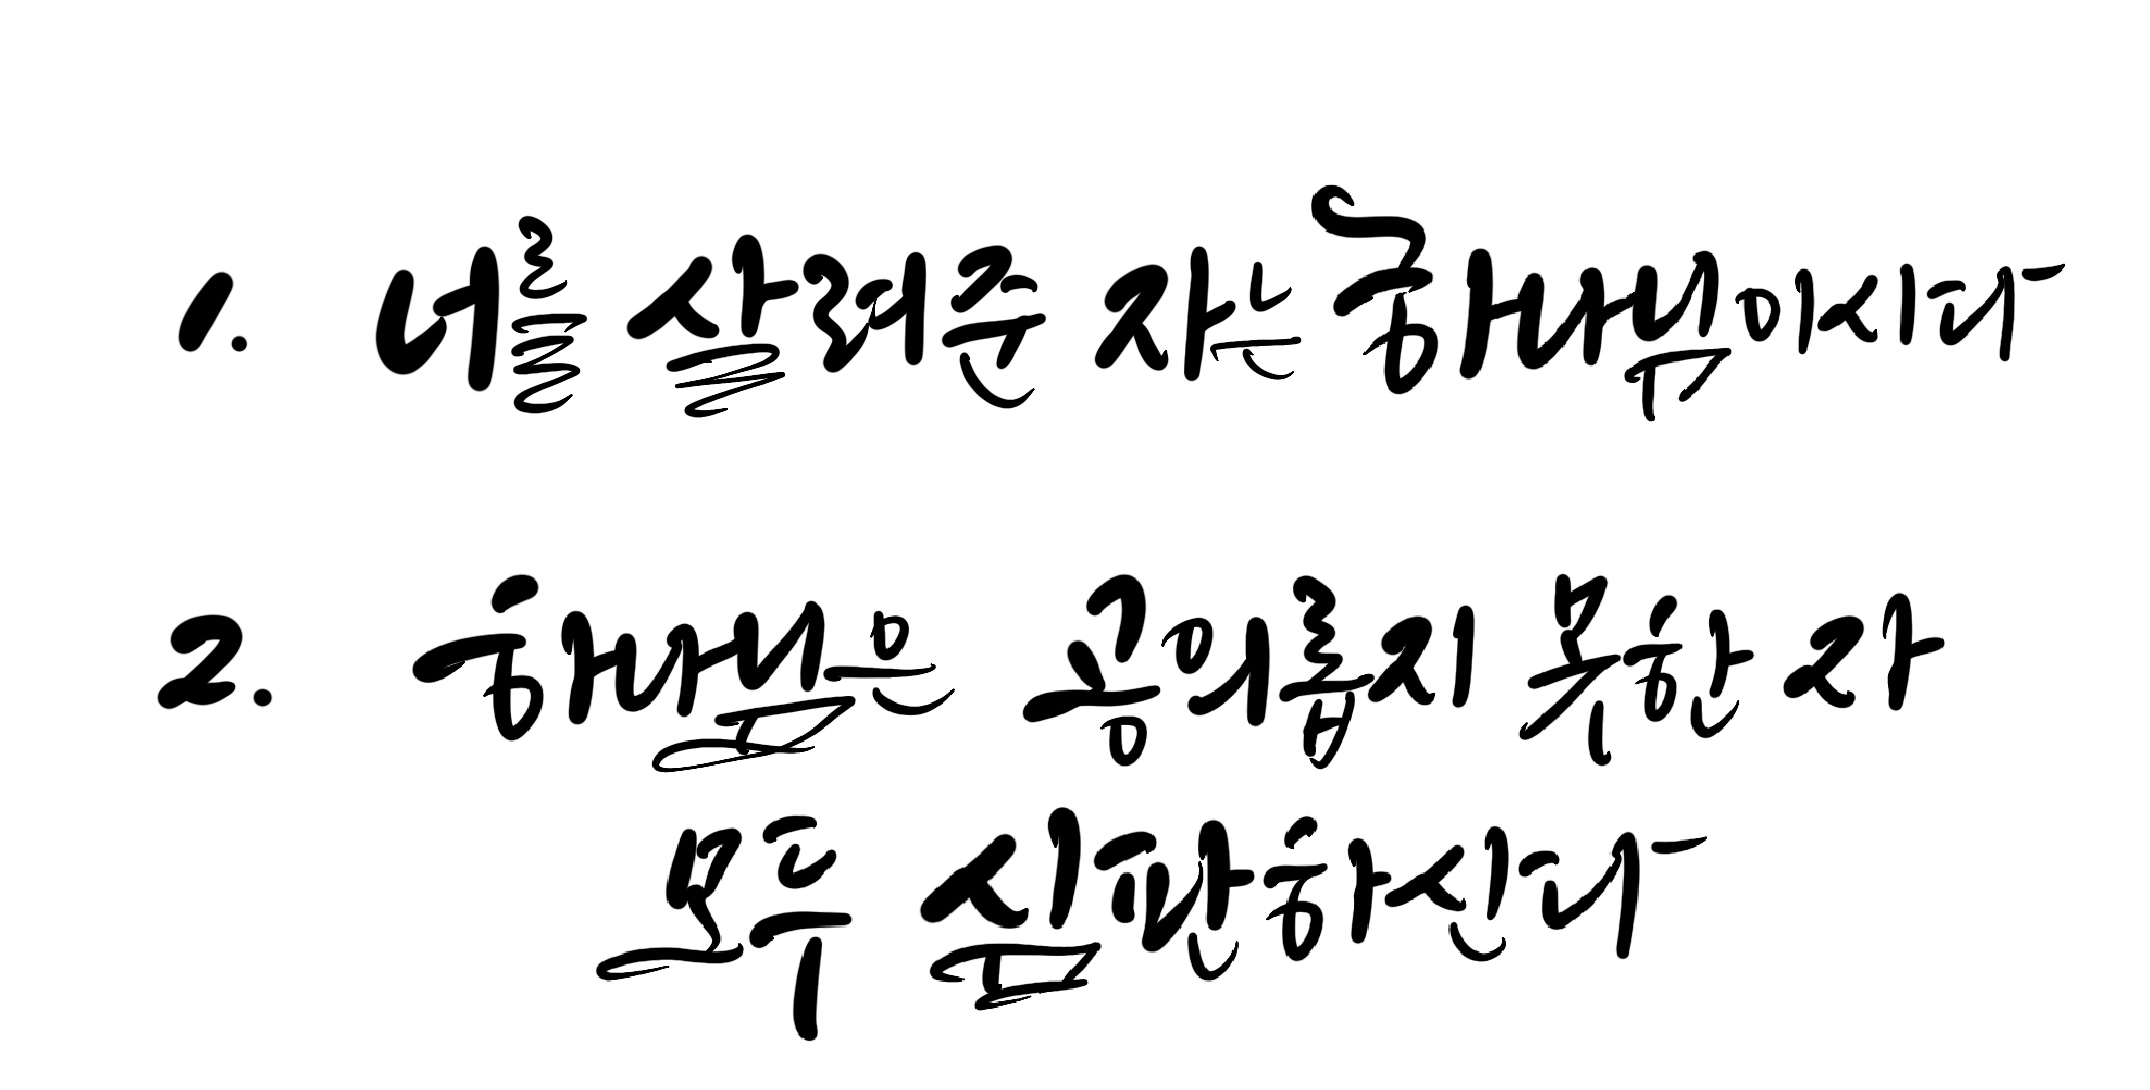 1. 너를 살려준 자는 하나님이시다
2. 하나님은 공의롭지 못한 자
모두 심판하신다